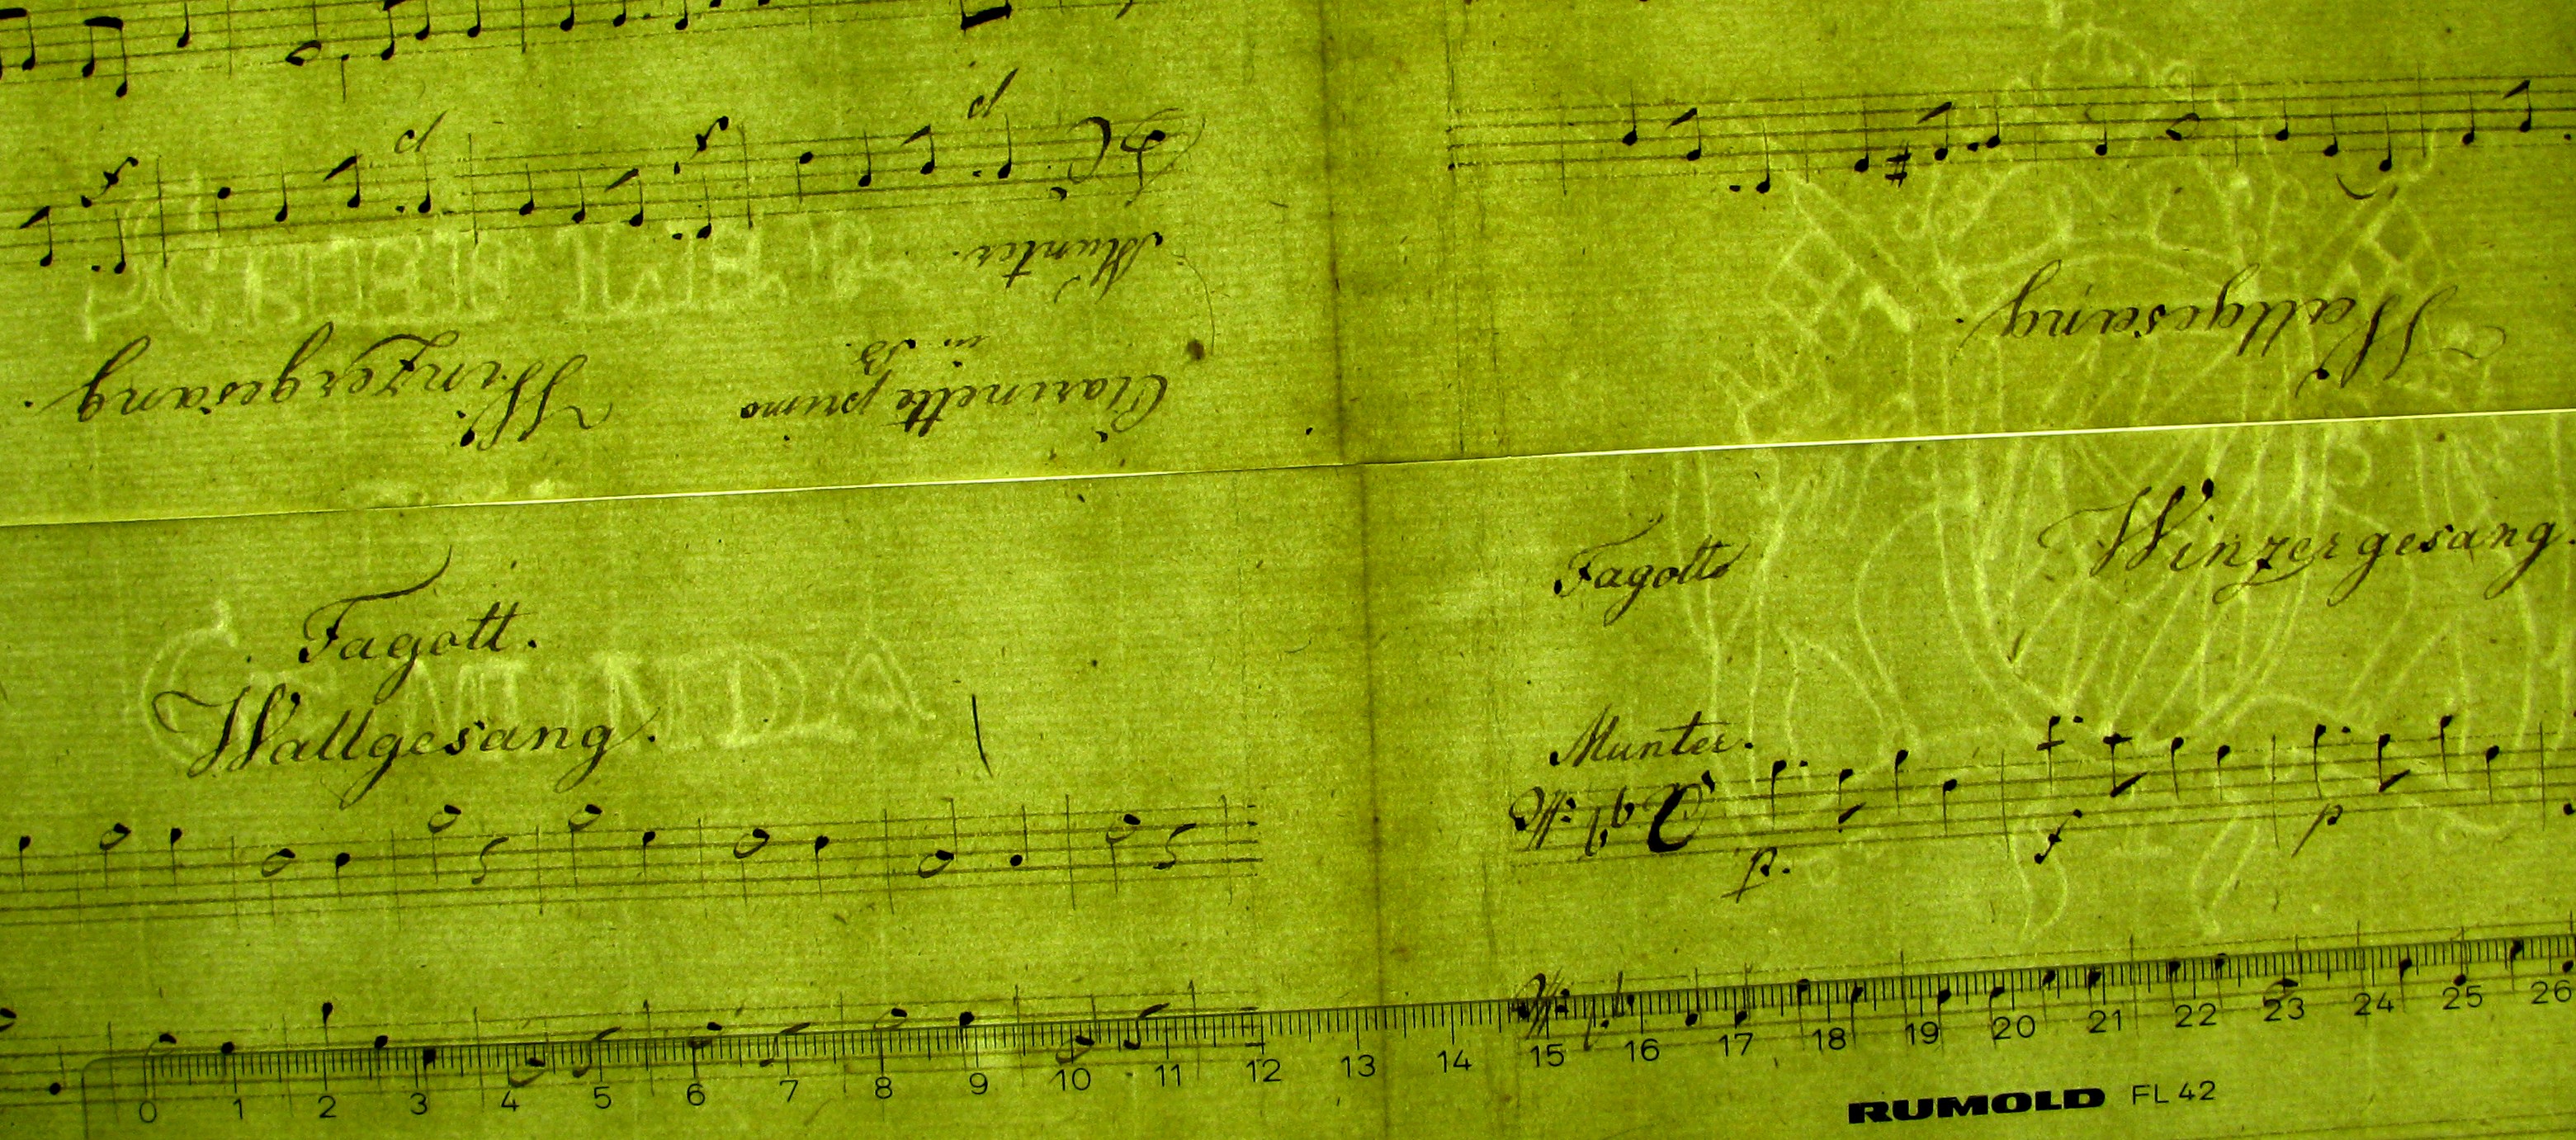 Munter.
Wallgesang.
Clarinetto primo
in B.
Winzergesang.
Fagott.
Wallgesang.
GEMUNDA
Fagotto
Winzergesang.
Munter.
p.
f
p
0 1 2 3 4 5 6 7 8 9 10 11 12 13 14 15 16 17 18 19 20 21 22 23 24 25 26
RUMOLD FL 42